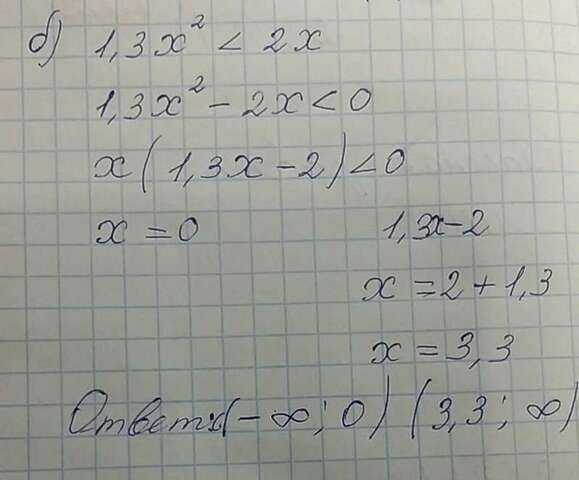 б) 1,3x² < 2x
1,3x² - 2x < 0
x(1,3x - 2) < 0
x = 0 1,3x - 2
x = 2 + 1,3
x = 3,3
Ответ: (-∞; 0) (3,3; ∞)